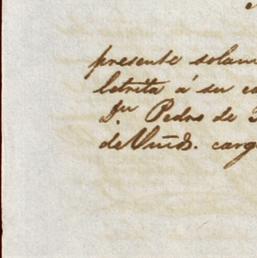 presente solam
letrita á su ca
Dn. Pedro de
de Vmds. carg